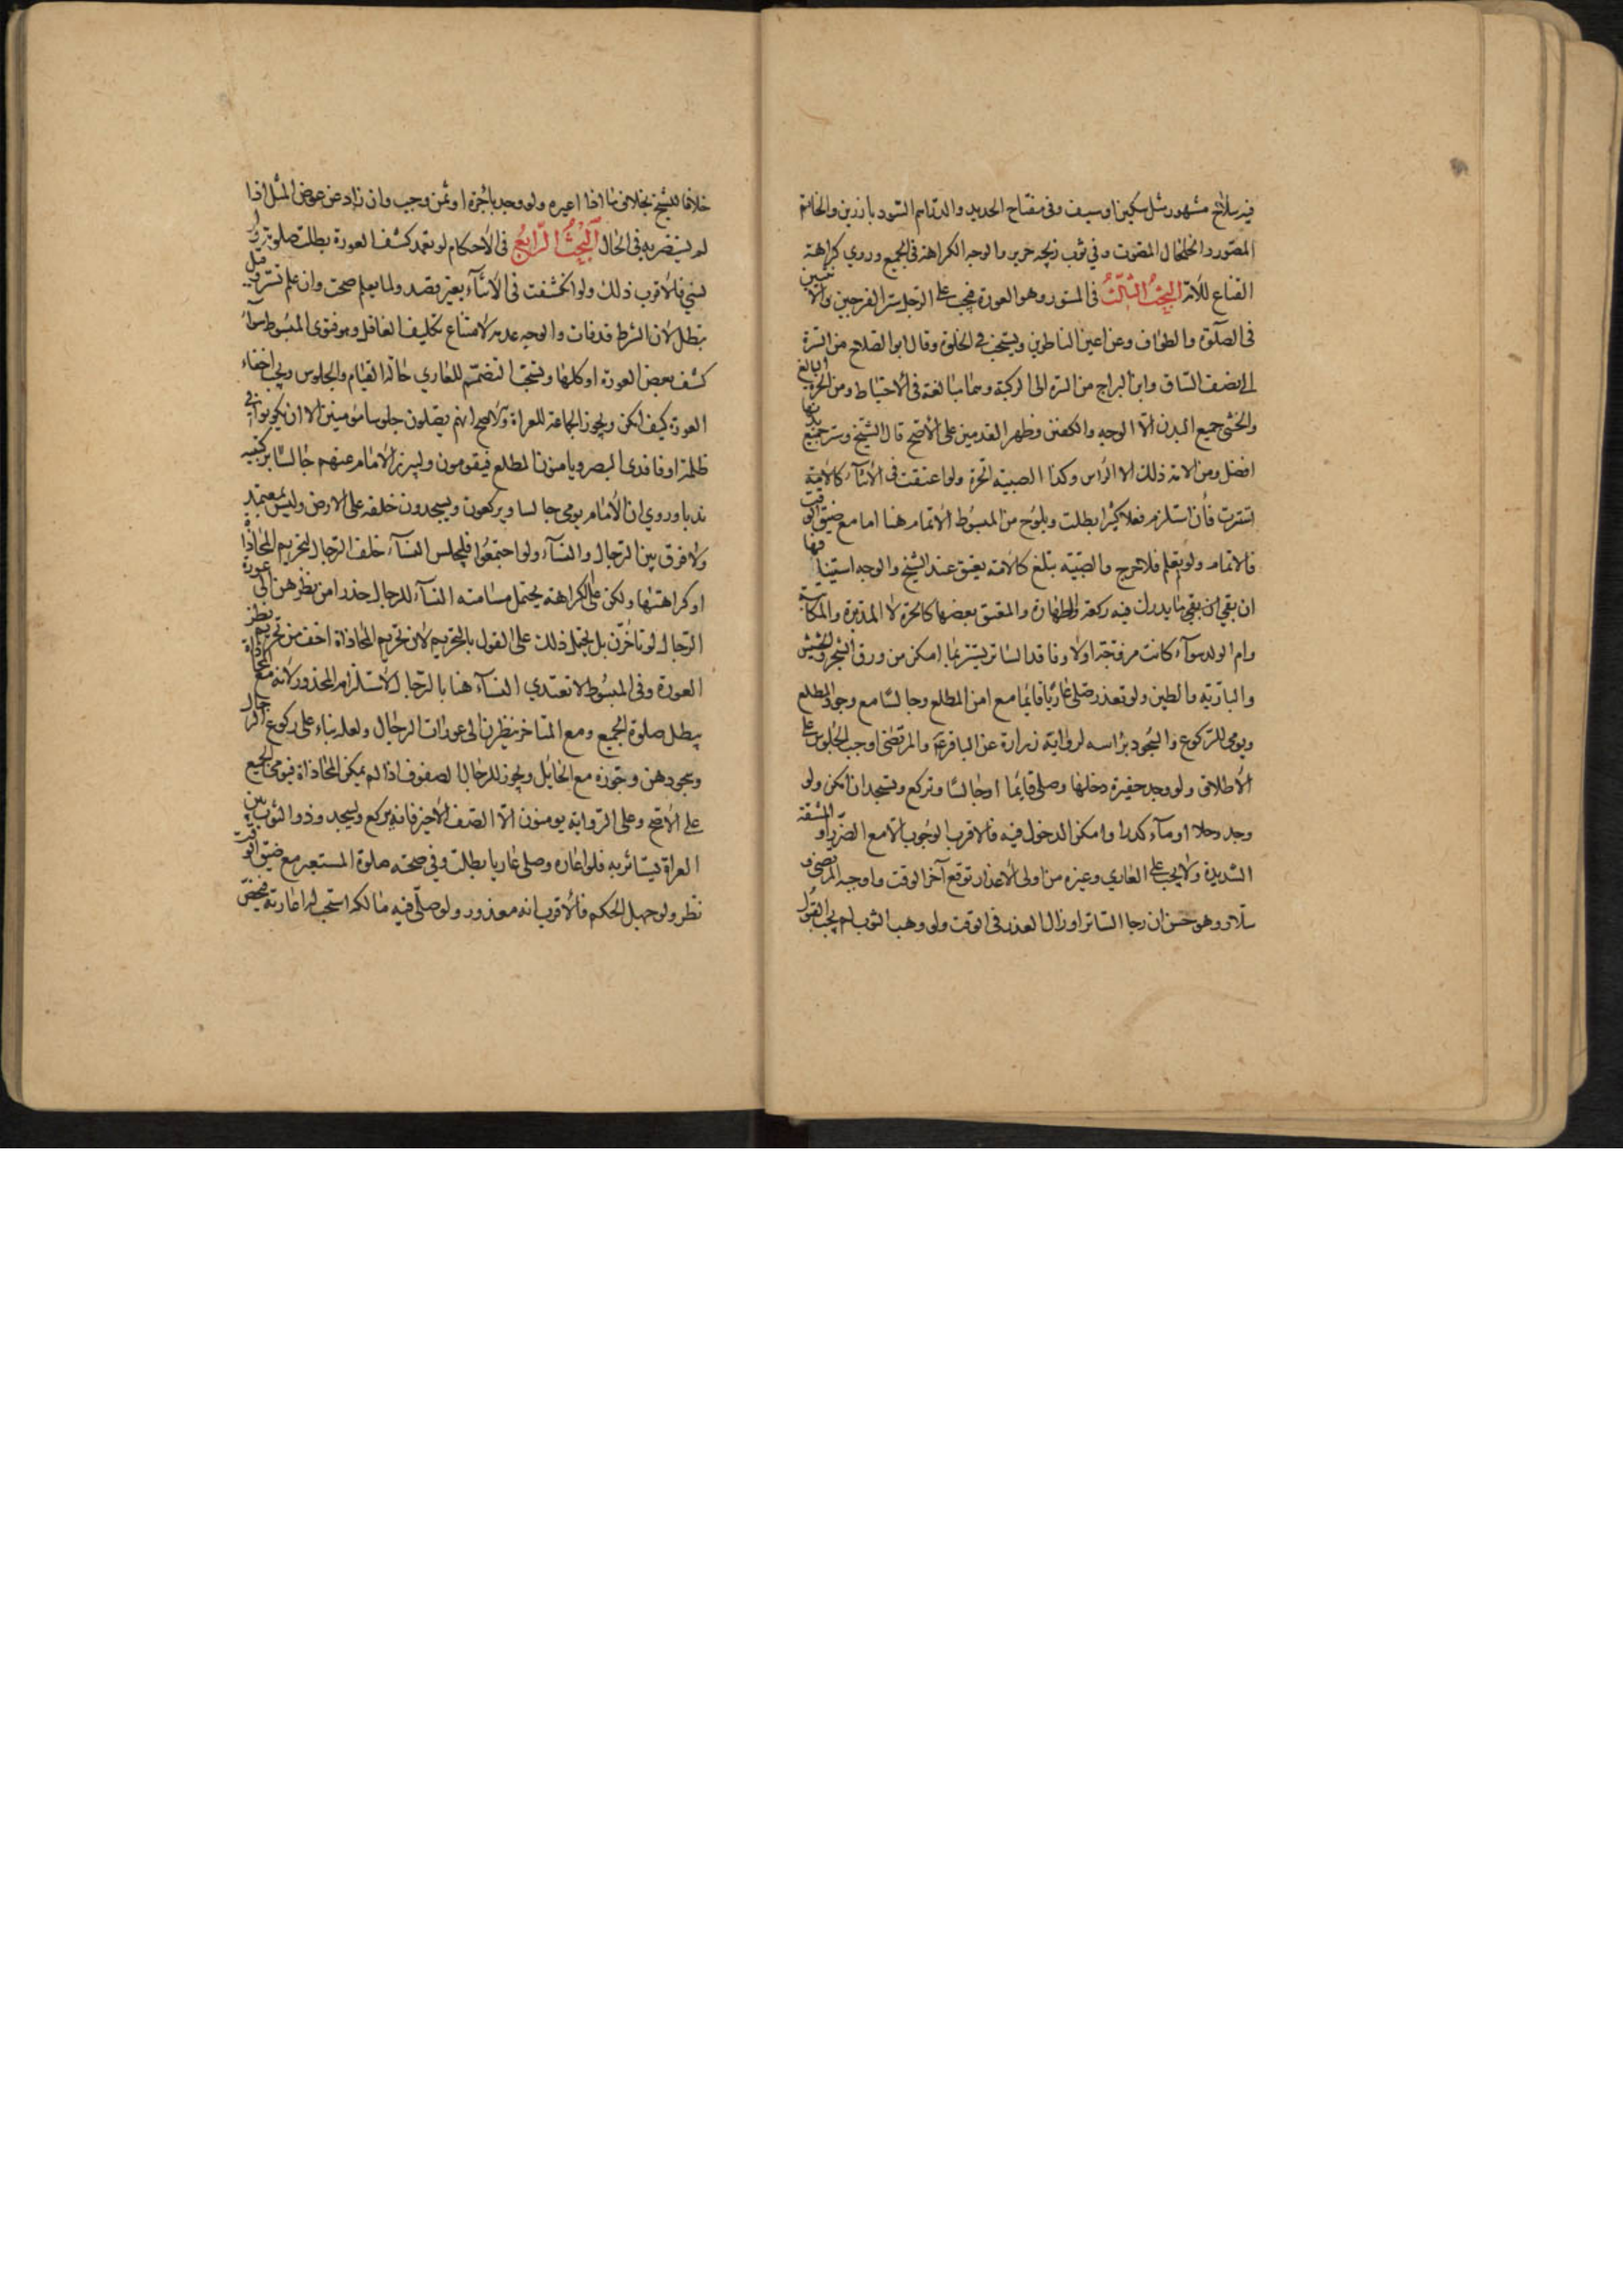 فيه سلاح مشهور مثل سكين او سيف وفى مفتاح الحديد والدراهم السود بارزين والخاتم
المصور والخلخال المصوت وفي ثوب زيجه حرير والوجه الكراهة فى الجميع وروي كراهة
القناع للأمة البحث الثالث فى المستور وهو العورة فيجب على الرجل ستر الفرجين والأنثيين
فى الصلوة والطواف وعن اعين الناظرين ويستحب فى الخلوة وقال ابو الصلاح من السرة
الى نصف الساق وابن البراج من السرة الى الركبة وحملا مبالغة فى الاحتياط ومن الحرة البالغ
والخنثى جميع البدن الا الوجه والكفين وظهر القدمين على الأصح قال الشيخ وستر جميع بدنها
افضل ومن الامة ذلك الا الرأس وكذا الصبية الحرة ولو اعتقت فى الأثناء كالأمة
استترت فأن استلزم فعلا كثيرا بطلت ويلوح من المبسوط الأتمام هنا اما مع ضيق الوقت
فالاتمام ولو لم يعلم فلا حرج والصبية تبلغ كالأمة يعتق عند الشيخ والوجه استينافها
ان بقي ما يدرك فيه ركعة والطهارة والمعتق بعضها كالحرة لا المدبرة والمكاتبة
وام الولد سواء كانت مزوجة اولا وفاقد الساتر يستتر بما امكن من ورق الشجر والحشيش
والبارية والطين ولو تعذر صلى عاريا قائما مع امن المطلع وجالسا مع وجود المطلع
ويومى للركوع والسجود برأسه لرواية زرارة عن الباقر ع والمرتضى اوجب الجلوس على
الأطلاق ولو وجد حفيرة دخلها وصلى قائما اوجالسا وتركع وتسجد ان امكن ولو
وجد وحلا او ماء كدرا وامكن الدخول فيه فالاقرب الوجوب الا مع الضرر او المشقة
الشديدة ولا يجب على العاري وغيره من اولى الأعذار توقع آخر الوقت واوجبه المرتضى و
سلار وهو حسن ان رجا الساتر او زال العذر فى الوقت ولو وهب الثوب لم يجب القبول
خلافا للشيخ بخلاف ما اذا اعيره ولو وجد باجرة او ثمن وجب وان زاد عن عوض المثل اذا
لم يستضر به فى الحال البحث الرابع فى الأحكام لو تعمد كشف العورة بطلت صلوته ولو
نسي فالأقرب ذلك ولو انكشفت فى الأثناء بغير قصد ولما يعلم صحت وان علم تستر وقيل
تبطل لأن الشرط قد فات والوجه عدمه لأمتناع تكليف الغافل وهو فتوى المبسوط سواء
كشف بعض العورة او كلها ويستحب التضمم للعاري حالة القيام والجلوس ويجب اخفاء
العورة كيف امكن ويجوز الجماعة للعراة والأصح انهم يصلون جلوسا مؤمنين الا ان يكونوا فى
ظلمة او فاقدى البصر ويامنون المطلع فيقومون وليبرز الأمام عنهم جالسا بركبتيه
ندبا وروي ان الأمام يومى جالسا ويركعون ويسجدون خلفه على الارض وليس بمعتمد
ولا فرق بين الرجال والنساء ولو اجتمعوا فليجلس النساء خلف الرجال لتحريم المحاذاة
او كراهتها ولكن على الكراهة يحتمل مسامتة النساء للرجال حذرا من نظرهن الى عورة
الرجال لو تأخرن بل يحتمل ذلك على القول بالتحريم لأن تحريم المحاذاة اخف من تحريم نظر
العورة وفى المبسوط لا تعتدي النساء هنا بالرجال لأستلزام المحذور لأنه مع المحاذاة
يبطل صلوة الجميع ومع التأخر ينظرن الى عورات الرجال ولعله بناء على ركوع الرجال
وسجودهن وجوزه مع الحايل ويجوز للرجال الصفوف اذا لم يمكن المحاذاة فيومى الجميع
على الأصح وعلى الرواية يومئون الا الصف الأخير فانه يركع ويسجد وذو الثوب بين
العراة يستأثر به فلو اعاره وصلى عاريا بطلت وفي صحة صلوة المستعير مع ضيق الوقت
نظر ولو جهل الحكم فالأقرب انه معذور ولو صلى فيه مالكه استحب له اعارته فيخص